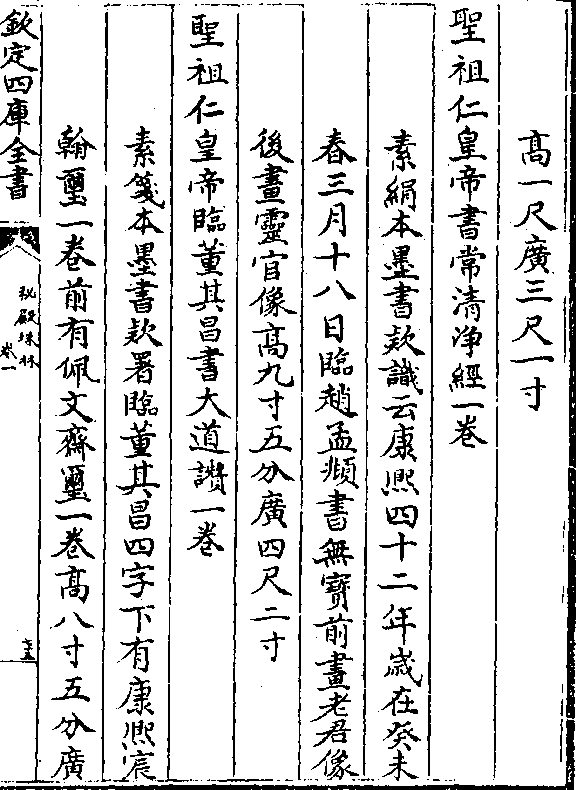 高一尺廣三尺一寸
聖祖仁皇帝書常清浄經一卷
素絹本墨書欵識云康熙四十二年歲在癸未
春三月十八日臨趙孟頫書無寶前畫老君像
後畫靈官像高九寸五分廣四尺二寸
聖祖仁皇帝臨董其昌書大道讚一卷
素箋本墨書欵署臨董其昌四字下有康熙宸
翰璽一卷前有佩文齋璽一卷高八寸五分廣
欽定四庫全書
秘殿珠林
卷一